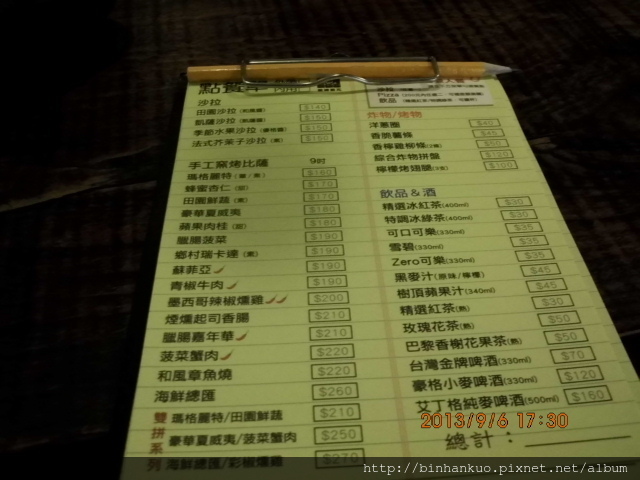 點餐單
沙拉
田園沙拉 $140
凱薩沙拉 $150
季節水果沙拉 $150
法式芥茉子沙拉 $150
手工窯烤比薩 9吋
瑪格麗特 $160
蜂蜜杏仁 $170
田園鮮蔬 $170
豪華夏威夷 $180
蘋果肉桂 $180
臘腸菠菜 $190
鄉村瑞卡達 $190
蘇菲亞 $190
青椒牛肉 $190
墨西哥辣椒燻雞 $200
煙燻起司香腸 $210
臘腸嘉年華 $210
菠菜蟹肉 $220
和風章魚燒 $220
海鮮總匯 $260
雙拼系列
瑪格麗特/田園鮮蔬 $210
豪華夏威夷/菠菜蟹肉 $250
海鮮總匯/彩椒燻雞 $270
Pizza
飲品
炸物/烤物
洋蔥圈 $40
香脆薯條 $45
香檸雞柳條 $50
綜合炸物拼盤 $120
檸檬烤翅腿 $100
飲品&酒
精選冰紅茶(400ml) $30
特調冰綠茶(400ml) $30
可口可樂(330ml) $35
雪碧(330ml) $35
Zero可樂(330ml) $35
黑麥汁(原味/檸檬) $45
樹頂蘋果汁(340ml) $45
精選紅茶(熱) $30
玫瑰花茶(熱) $50
巴黎香榭花果茶(熱) $50
台灣金牌啤酒(330ml) $70
豪格小麥啤酒(330ml) $120
艾丁格純麥啤酒(500ml) $160
總計：
2013/9/6 17:30
http://binhankuo.pixnet.net/album